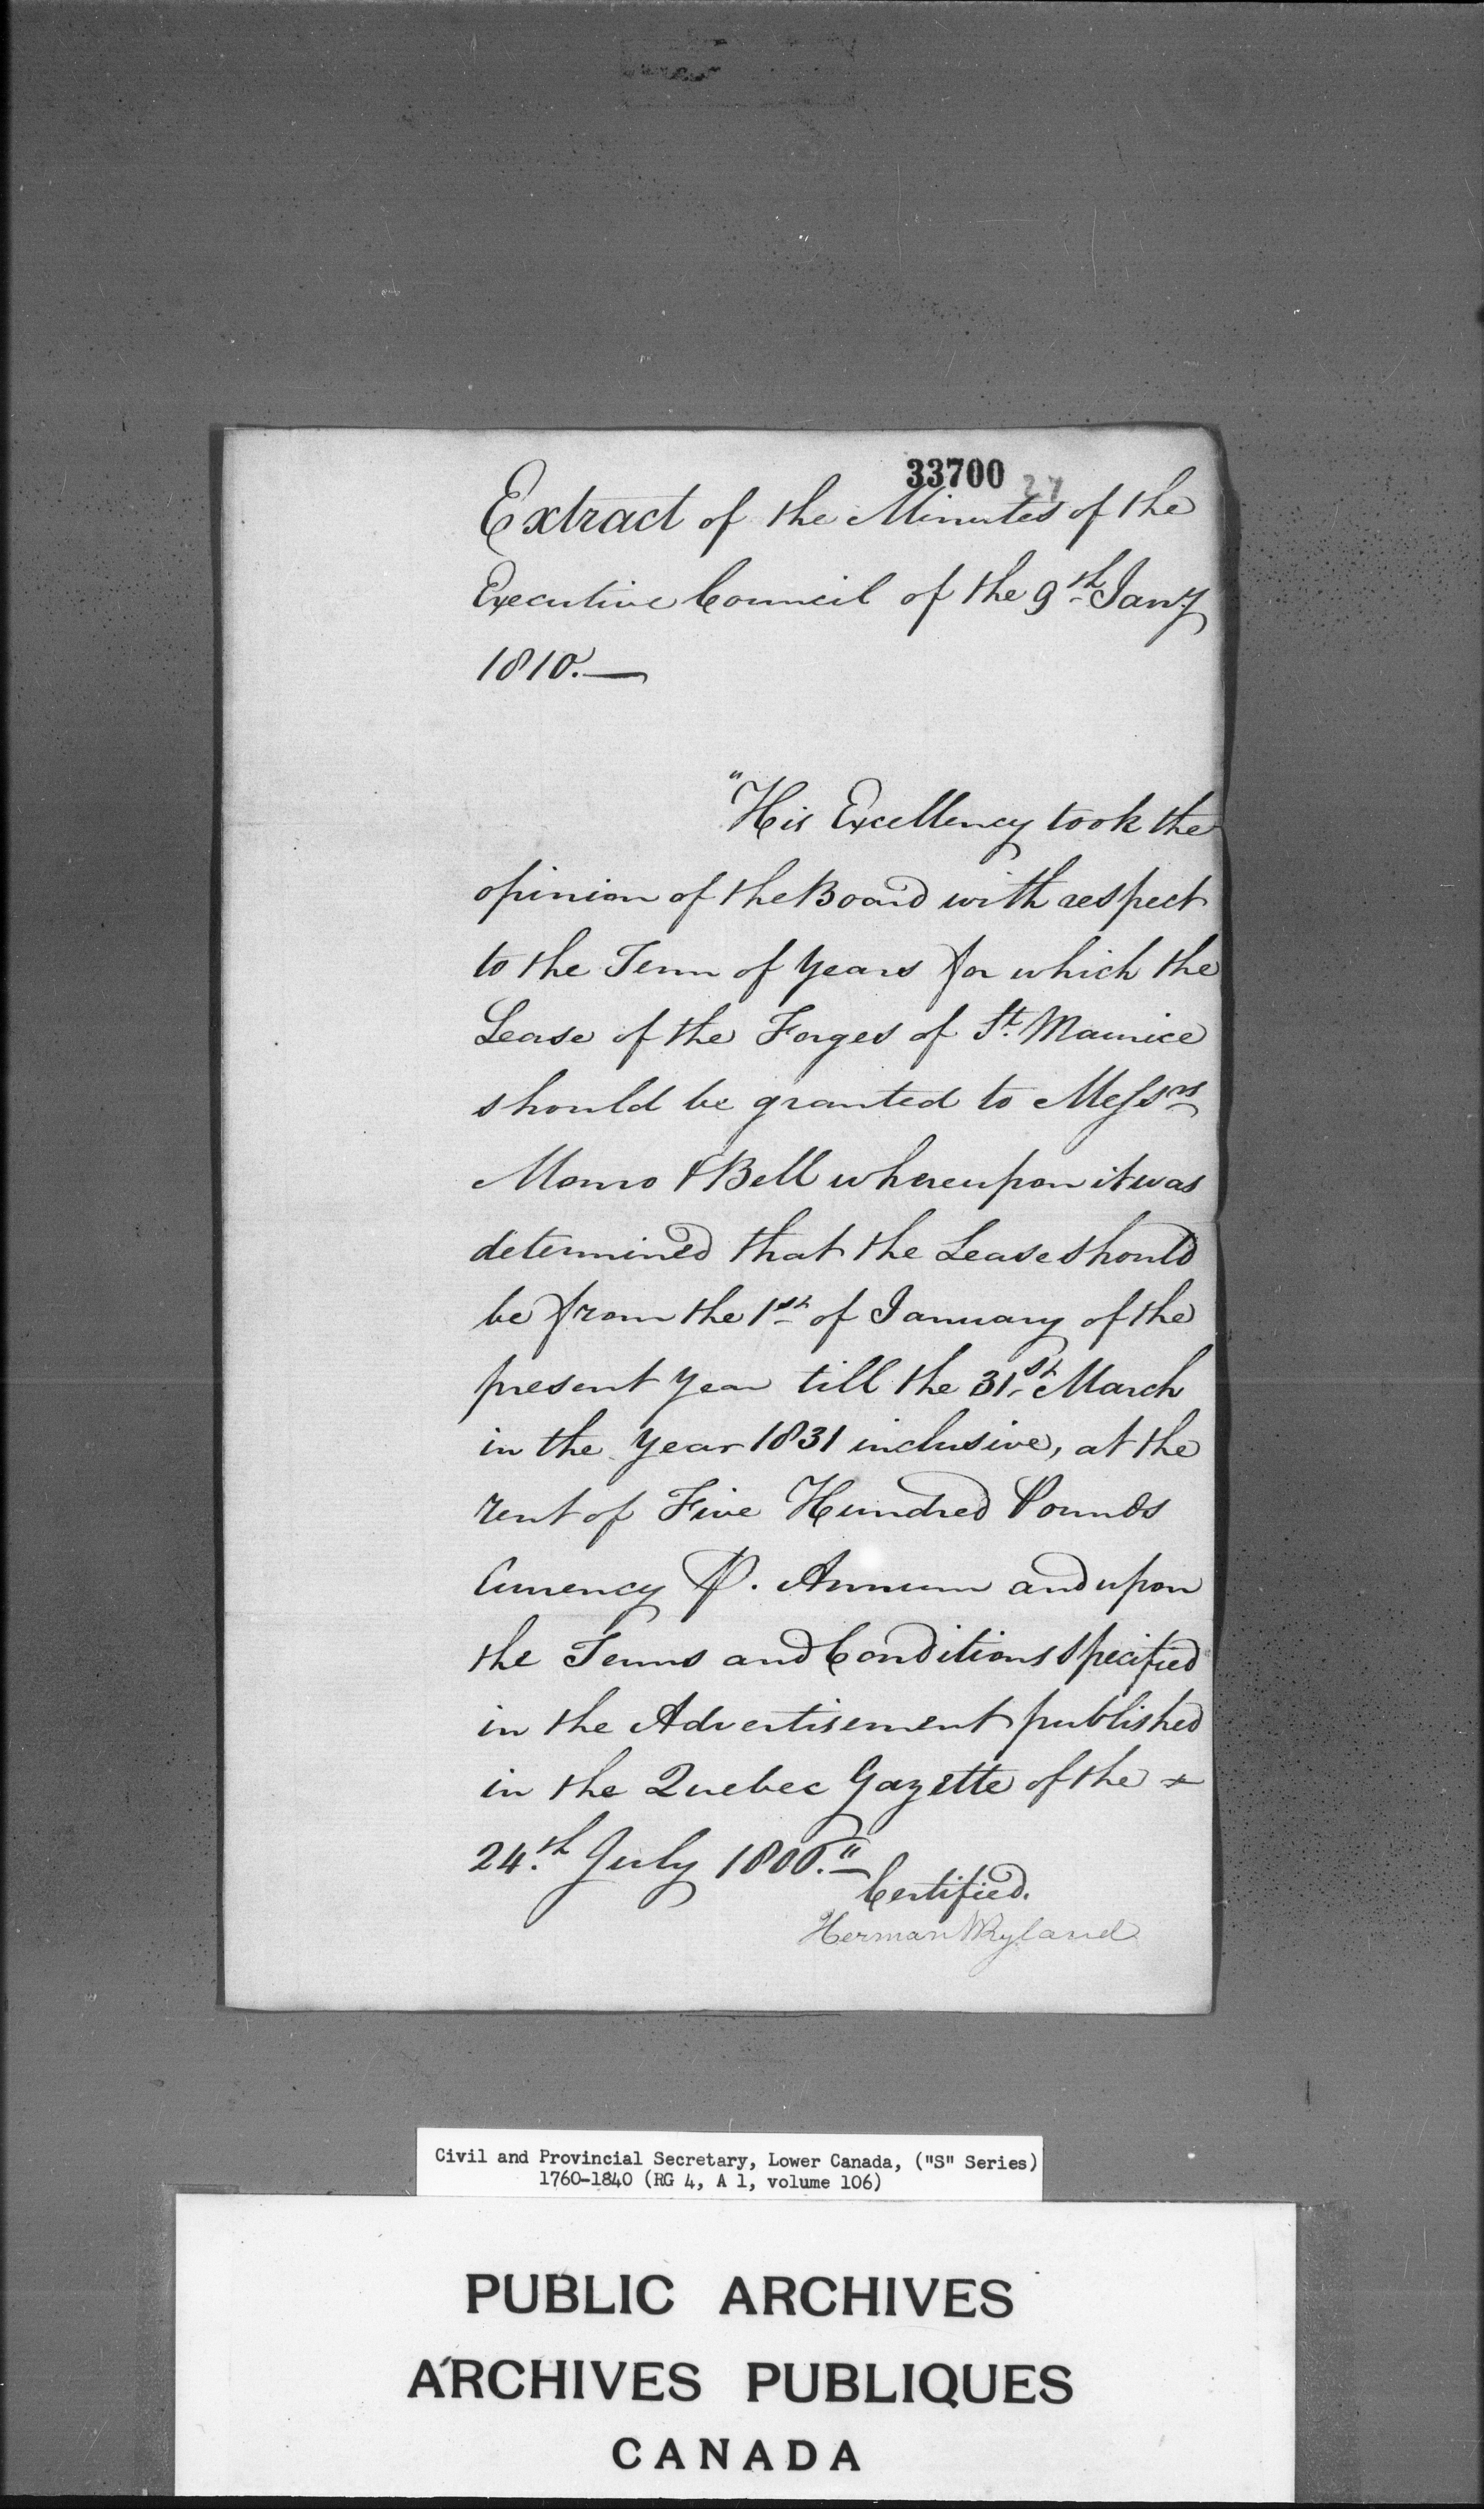 33700 27
Extract of the Minutes of the
Executive Council of the 9th Jany
1810.—
"His Excellency took the
opinion of the Board with respect
to the Term of Years for which the
Lease of the Forges of St. Maurice
should be granted to Messrs
Monro & Bell whereupon it was
determined that the Lease should
be from the 1st of January of the
present Year till the 31st March
in the Year 1831 inclusive, at the
rent of Five Hundred Pounds
Currency P. Annum and upon
the Terms and Conditions specified
in the Advertisement published
in the Quebec Gazette of the
24th July 1806."—
Certified.
Herman W Ryland
Civil and Provincial Secretary, Lower Canada, ("S" Series)
1760-1840 (RG 4, A 1, volume 106)
PUBLIC ARCHIVES
ARCHIVES PUBLIQUES
CANADA